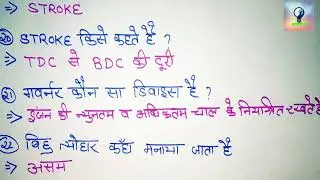 ⇒ STROKE
⑳ STROKE किसे कहते है ?
⇒ TDC से BDC की दूरी
㉑ गवर्नर कौन सा डिवाइस है ?
⇒ इंजन की न्युनतम व अधिकतम चाल के नियंत्रित रखते है
㉒ बिहु त्योहार कहाँ मनाया जाता है
⇒ असम